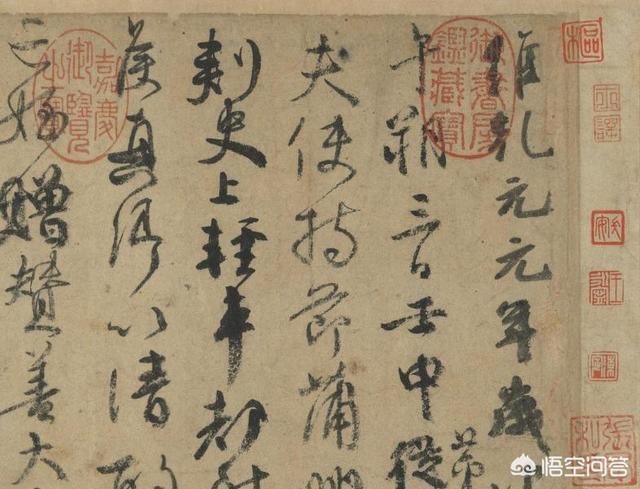 維乾元元年歲
午朔三日壬申第從
夫使持節蒲州
刺史上輕車都尉
侯真卿以清酌
亡姪贈贊善大
御書房鑑藏寶
嘉慶御覽之寶
樞
悟空问答